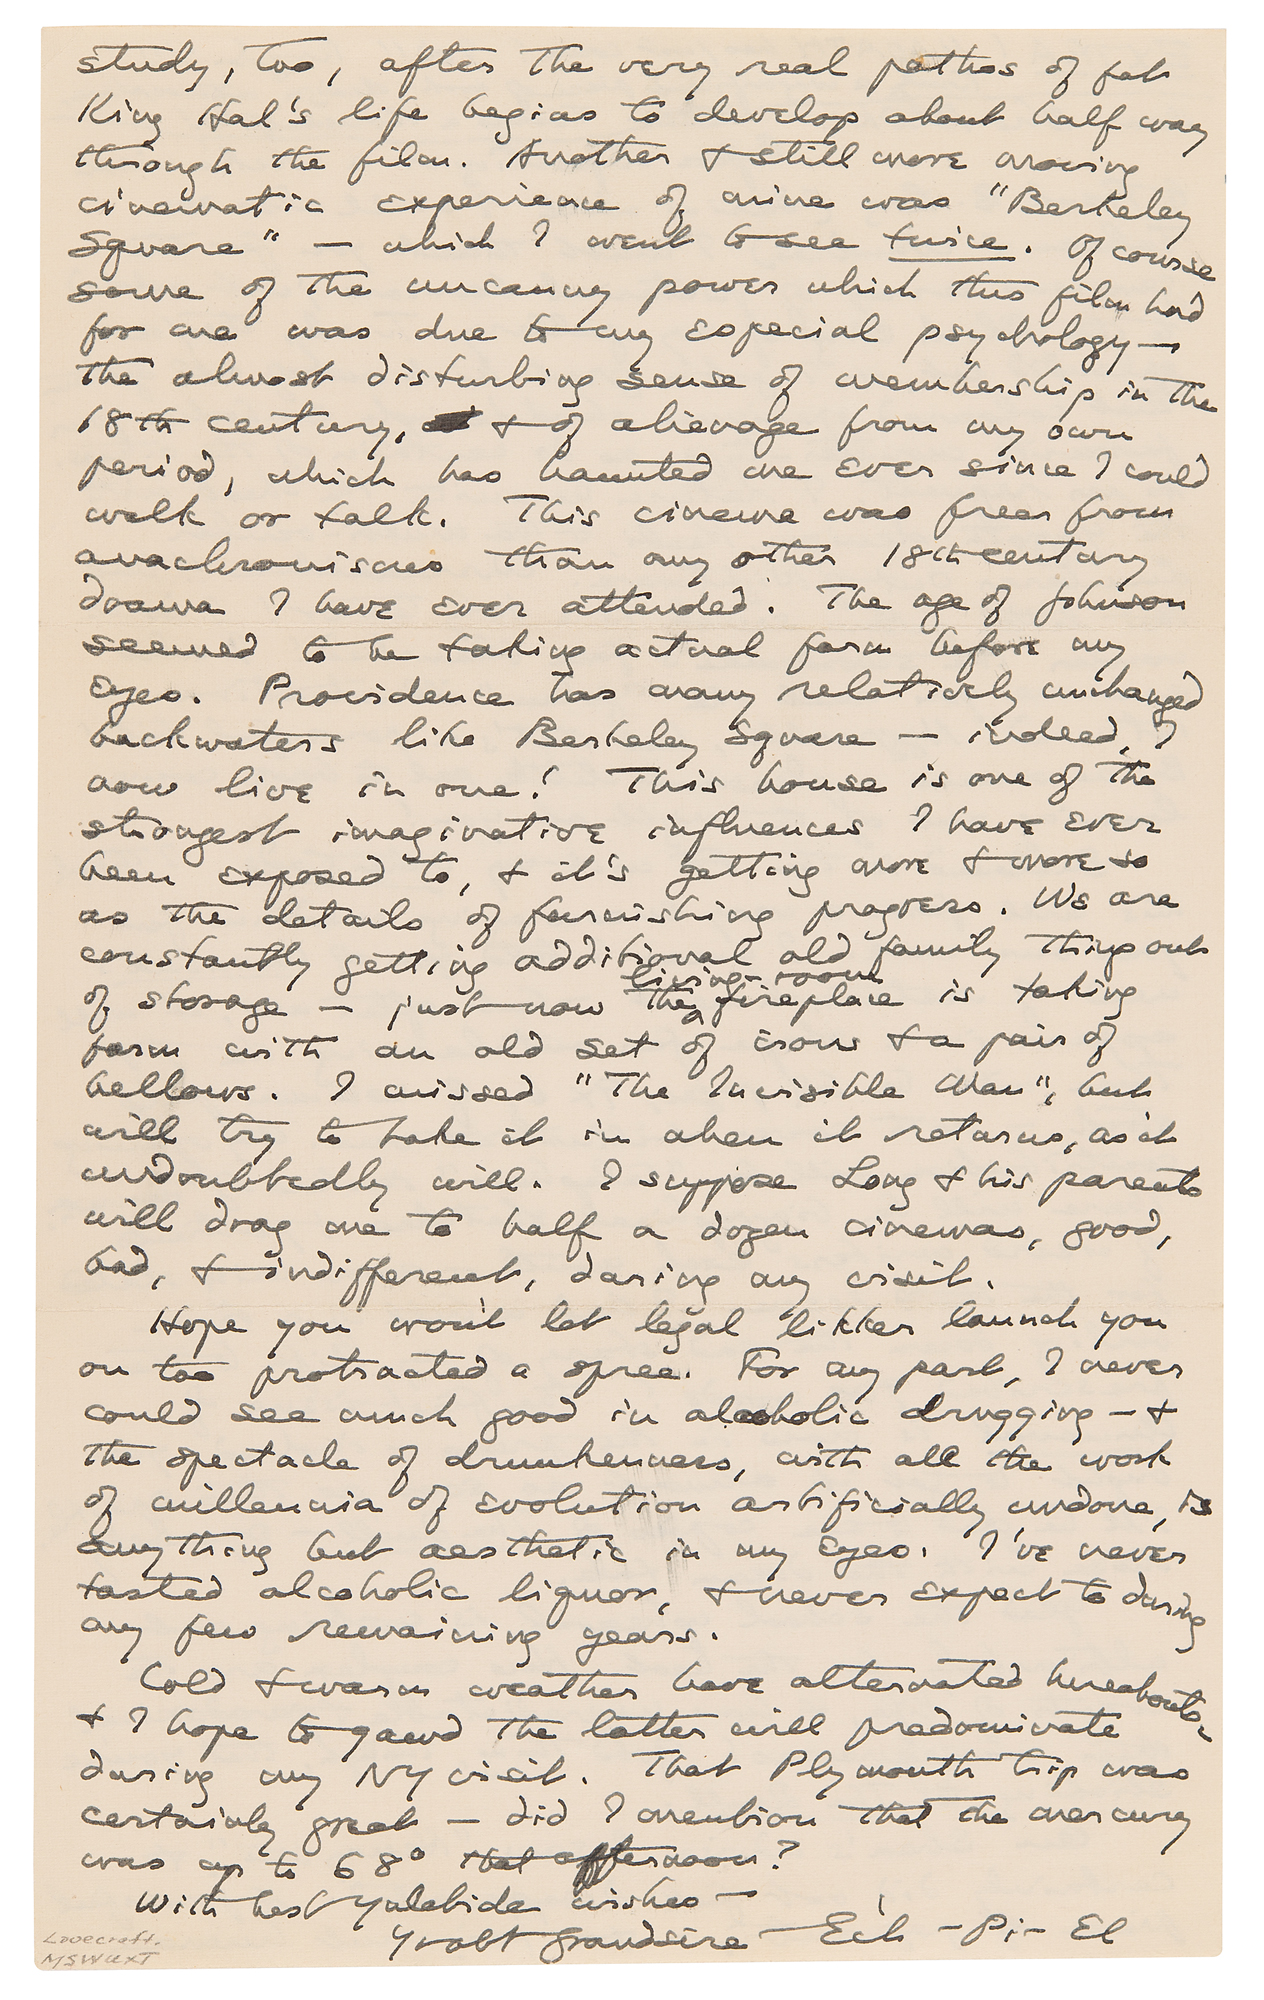 study, too, after the very real pathos of fat
King Hal's life begins to develop about half way
through the film. Another & still more moving
cinematic experience of mine was "Berkeley
Square" — which I went to see twice. Of course
some of the uncanny power which this film had
for me was due to my especial psychology —
the almost disturbing sense of membership in the
18th century, & of alienage from my own
period, which has haunted me ever since I could
walk or talk. This cinema was freer from
anachronisms than any other 18th century
drama I have ever attended. The age of Johnson
seemed to be taking actual form before my
eyes. Providence has many relatively unchanged
backwaters like Berkeley Square — indeed, I
now live in one! This house is one of the
strongest imaginative influences I have ever
been exposed to, & it's getting more & more so
as the details of furnishing progress. We are
constantly getting additional old family things out
of storage — just now the living-room fireplace is taking
form with an old set of irons & a pair of
bellows. I missed "The Invisible Man", but
will try to take it in when it returns, as it
undoubtedly will. I suppose Long & his parents
will drag me to half a dozen cinemas, good,
bad, & indifferent, during my visit.
Hope you won't let legal likker launch you
on too protracted a spree. For my part, I never
could see much good in alcoholic drugging — &
the spectacle of drunkenness, with all the work
of millennia of evolution artificially undone, is
anything but aesthetic in my eyes. I've never
tasted alcoholic liquor, & never expect to during
my few remaining years.
Cold & warm weather have alternated hereabouts,
& I hope to gawd the latter will predominate
during my NY visit. That Plymouth trip was
certainly great — did I mention that the mercury
was up to 68° that afternoon?
With best Yuletide wishes —
Yr obt Grandsire — Ech-Pi-El
Lovecraft.
MSWUXT